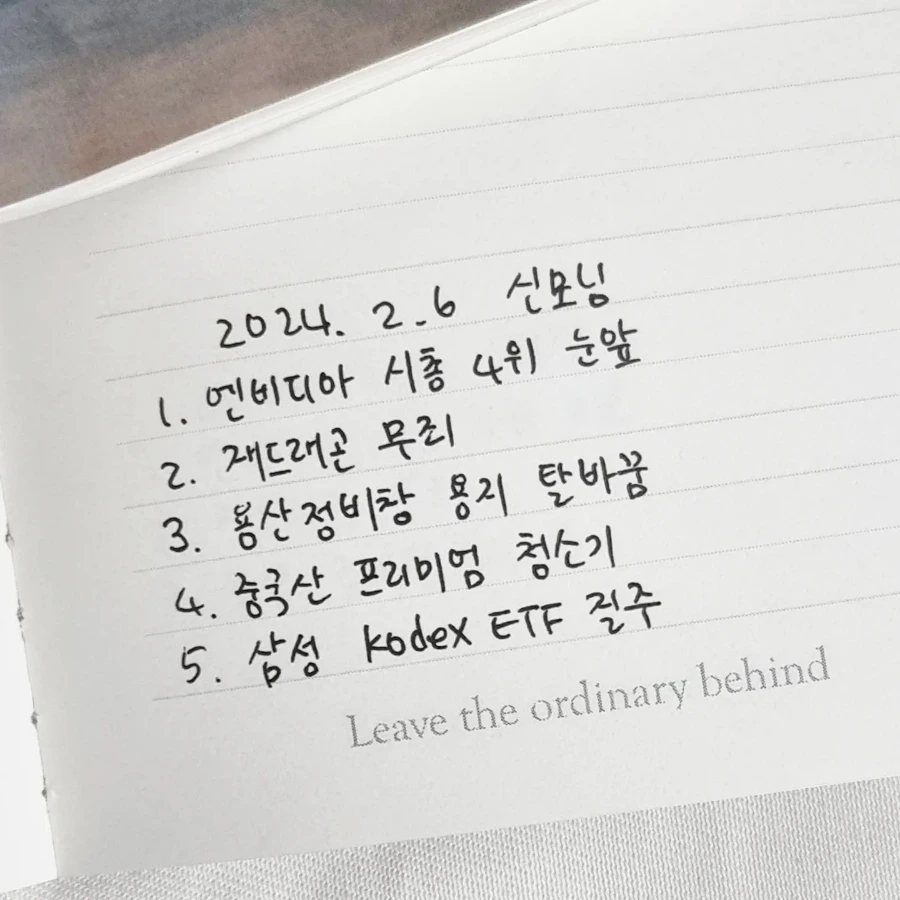 2024. 2.6 신모닝
1. 엔비디아 시총 4위 눈앞
2. 재드래곤 무죄
3. 용산정비창 용지 탈바꿈
4. 중국산 프리미엄 청소기
5. 삼성 Kodex ETF 질주
Leave the ordinary behind